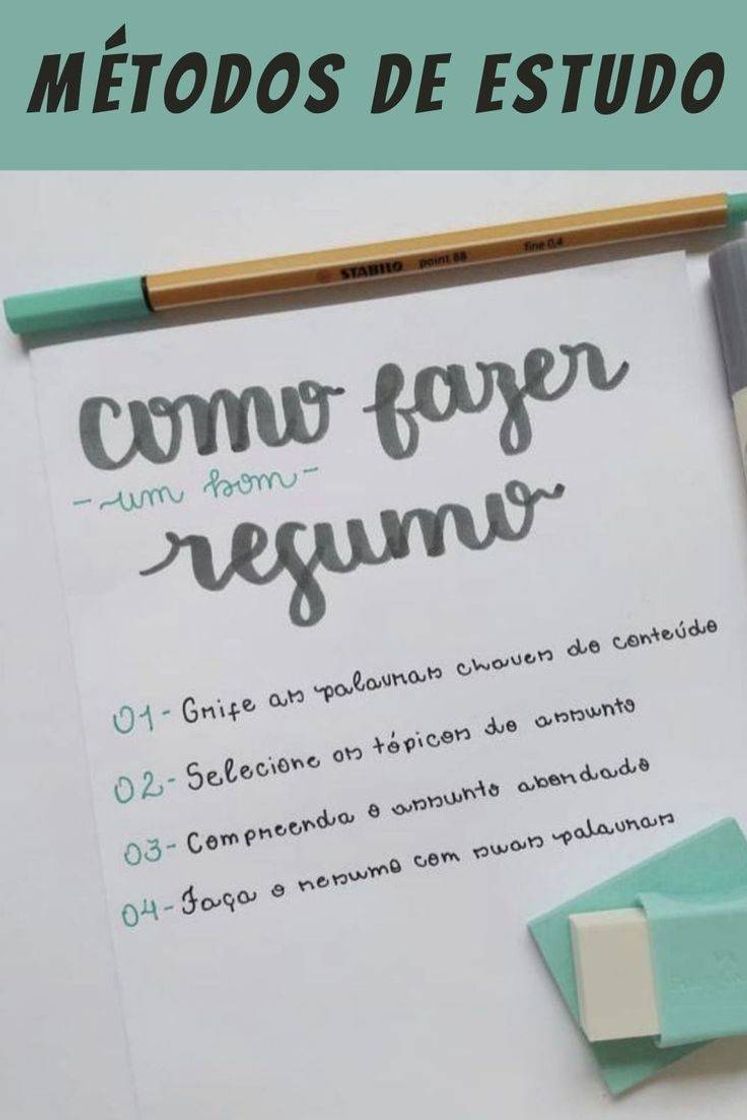 MÉTODOS DE ESTUDO
STABILO point 88 fine 0,4
como fazer
- um bom -
resumo
01- Grife as palavras chaves do conteúdo
02- Selecione os tópicos do assunto
03- Compreenda o assunto abordado
04- Faça o resumo com suas palavras